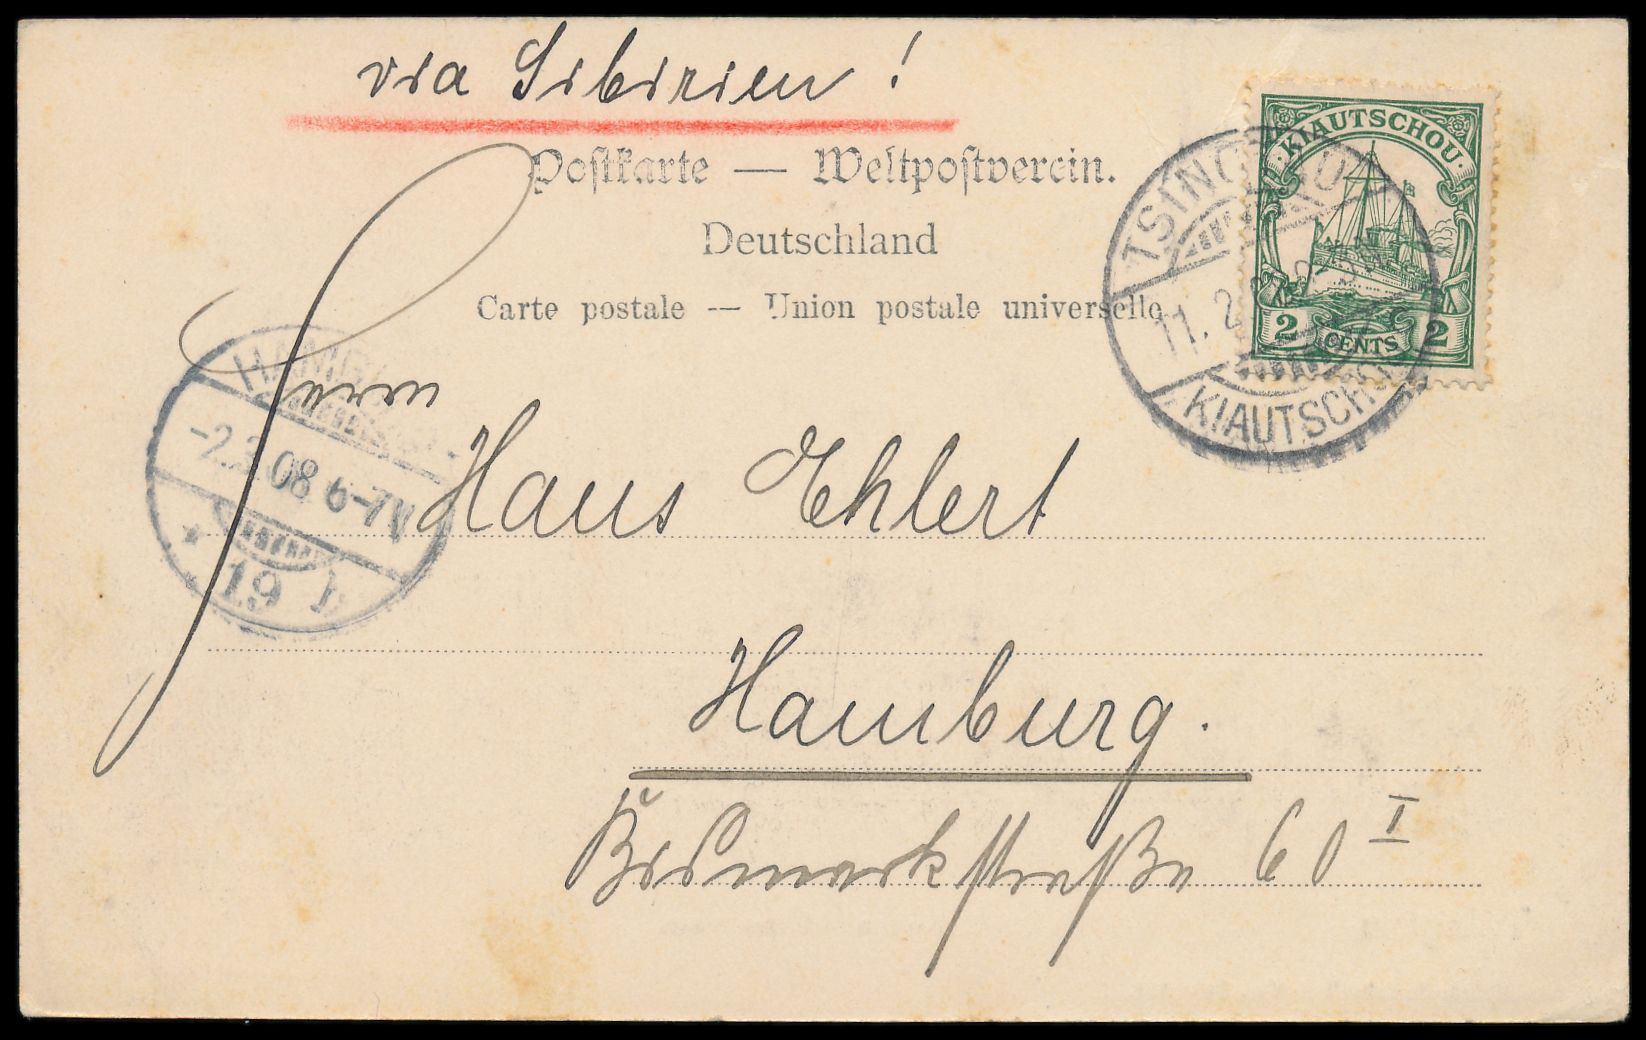 via Sibirien!
Postkarte — Weltpostverein.
Deutschland
Carte postale — Union postale universelle
KIAUTSCHOU
2 CENTS 2
TSINGTAU
11. 2.
KIAUTSCHOU
HAMBURG
-2.3.08 6-7V
* 19
Herrn
Hans Ehlert
Hamburg.
Bismarkstraße 60 I